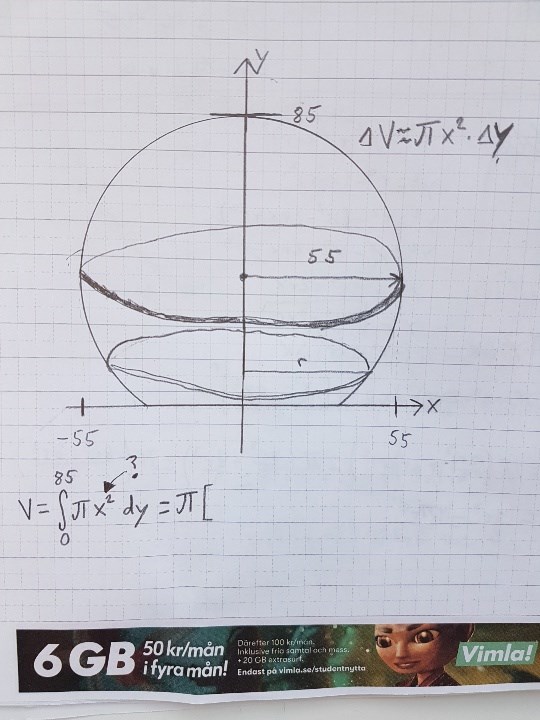 y
85
ΔV≈πx²·Δy
55
r
x
-55
55
?
85
V=∫πx² dy = π[
0
6 GB
50 kr/mån
i fyra mån!
Därefter 100 kr/mån.
Inklusive fria samtal och mess.
+ 20 GB extrasurf.
Endast på vimla.se/studentnytta
Vimla!